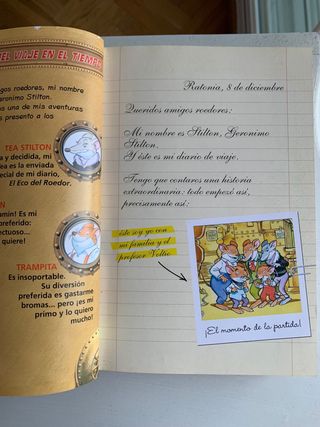 EL VIAJE EN EL TIEMPO
gos roedores, mi nombre
eronimo Stilton.
os una de mis aventuras
s presento a los
TEA STILTON
a y decidida, mi
ea es la enviada
ecial de mi diario,
El Eco del Roedor.
N
amín! Es mi
preferido:
ectuoso...
quiere!
TRAMPITA
Es insoportable.
Su diversión
preferida es gastarme
bromas... pero ¡es mi
primo y lo quiero
mucho!
Ratonia, 8 de diciembre
Queridos amigos roedores:
Mi nombre es Stilton, Geronimo
Stilton.
Y éste es mi diario de viaje.
Tengo que contaros una historia
extraordinaria: todo empezó así,
precisamente así:
éste soy yo con
mi familia y el
profesor Voltio
¡El momento de la partida!